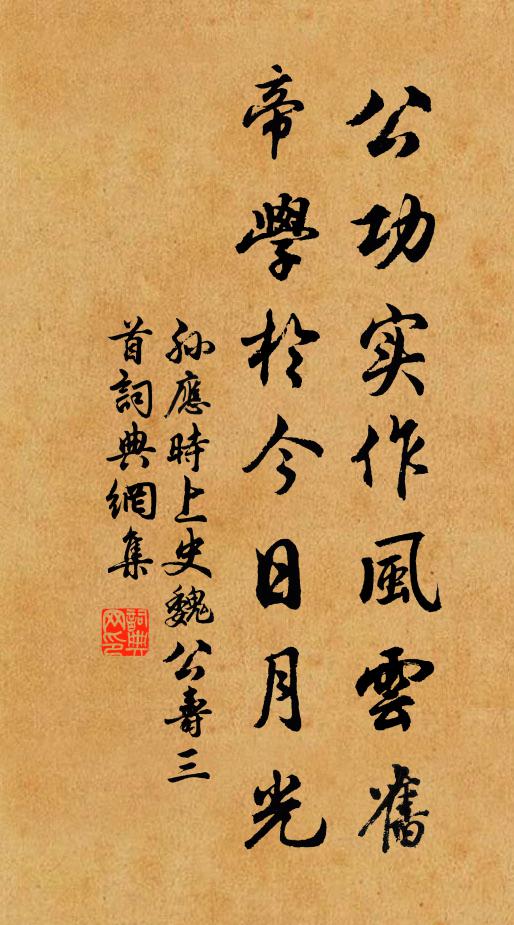 公功实作風雲舊
帝學於今日月光
孫應時上史魏公壽三
首詞典網集
詞典
网印